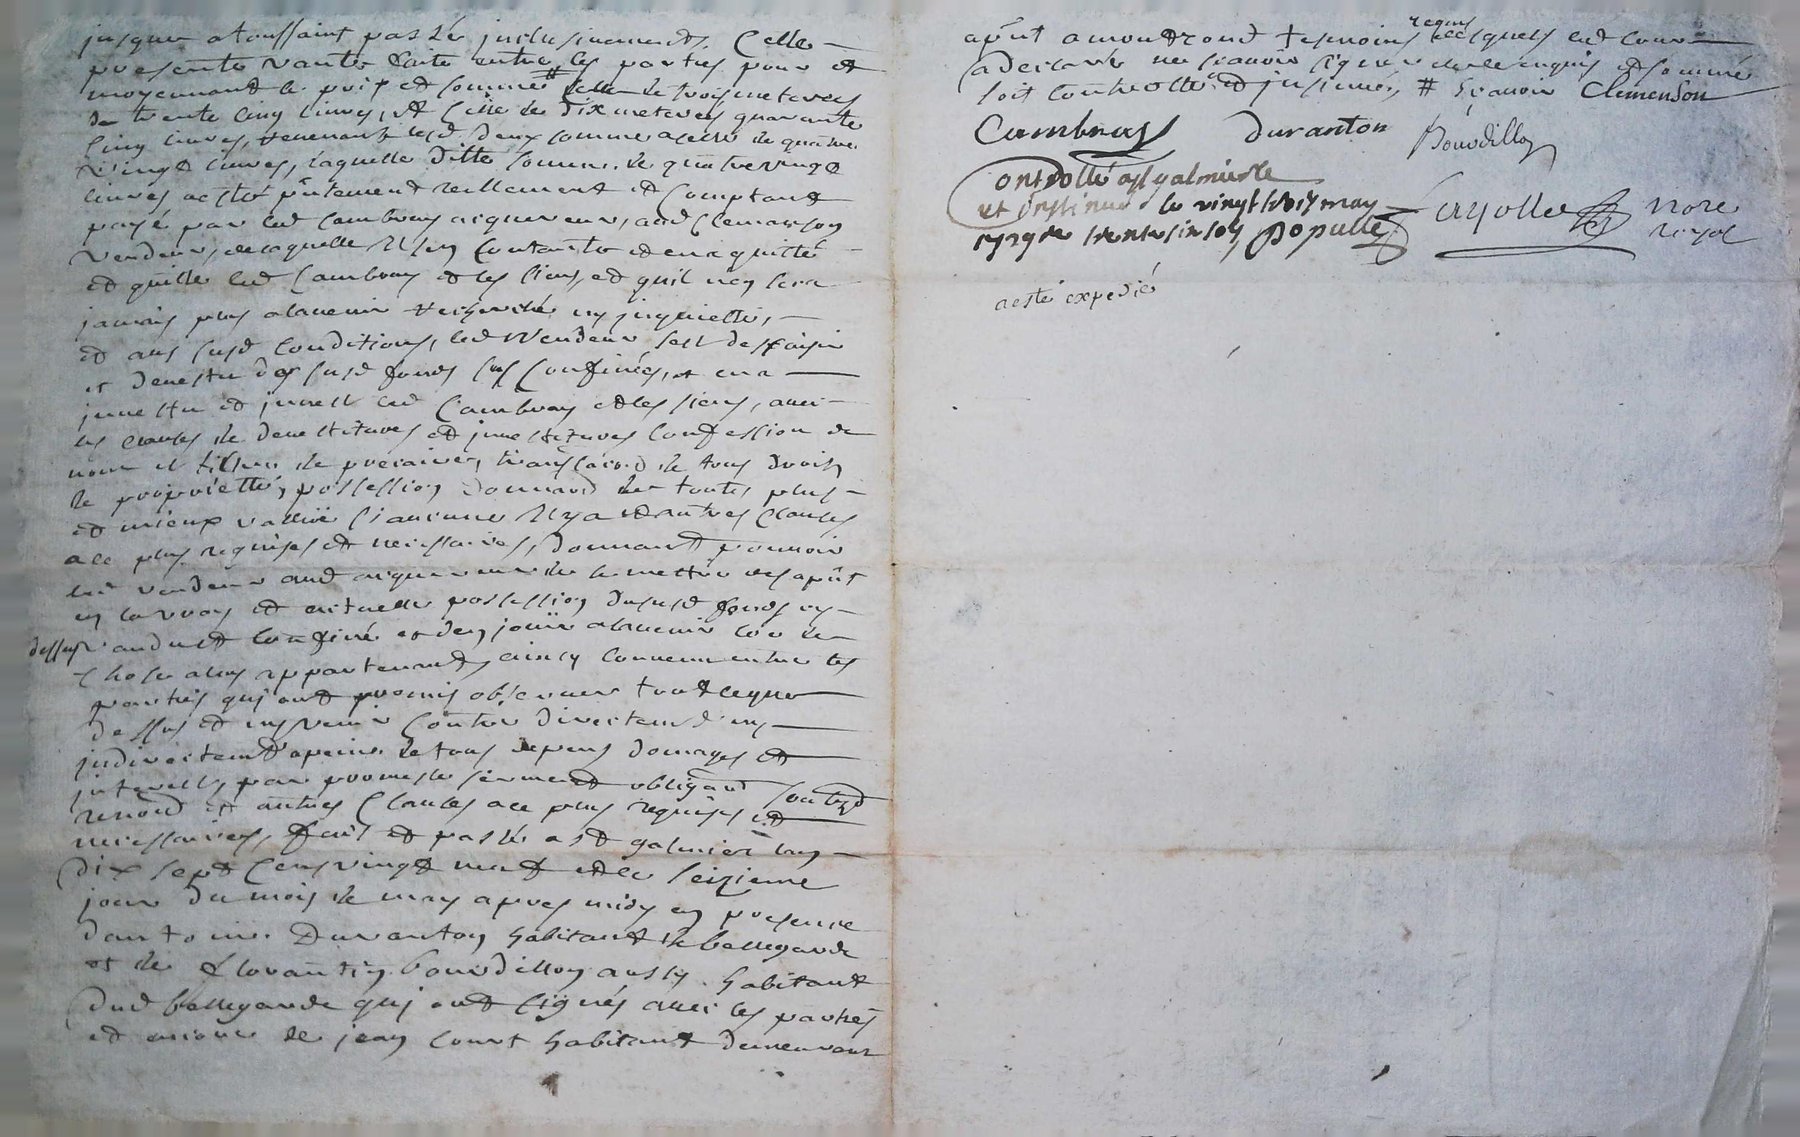 jusques a toussaint passée inclusivement. Cette
presente vante faite entre les parties pour et
moyennant le prix et somme # celle de trois meteres
de trente cinq livres, et celle de dix meteres quarante
cinq livres, revenant lesd deux somme a celle de quatre
vingt livres, laquelle ditte somme de quatre vingt
livres a esté pñtement reellement et comptant
payé par led Cambray acquereur, aud Clemanson
vendeur, de laquelle il sen contante et en a quitté
et quitte led Cambray et les siens, et quil nen sera
jamais plus a lavenir recherché ny inquietté,
et aux susd conditions, led vendeur sest dessaisi
et devestu des susd fonds sus confinés, et en a
investu et investi led Cambray et les siens, avec
les clauses de devestitures et investitures confession de
nom et tiltre de precaire, transport de tous droits
de proprietté, possession donnant de toute plus
et mieux vallüe si aucune il y a et autres clauses
a ce plus requises et necessaires, donnant pouvoir
led vendeur aud acquereur de se mettre des apñt
en la vray et actuelle possession du susd fonds cy
dessus vandu et confiné et den jouir a lavenir comme de
chose a luy appartenant, ainsy convenu entre les
parties qui ont promis observer tout ce que
dessus et ny venir contre directement ny
indirectemt a peine de tous depens domages et
interests, par promesse serment obligant soumis
renond et autres clauses a ce plus requises et
necessaires, fait et passé a st galmier lan
dix sept cens vingt neuf et le seizieme
jour du mois de may apres midy en presence
dantoine Duranton habitant de bellegarde
et de florantin bourdillon aussy habitant
dud bellegarde qui ont signés avec les parties
et encore de jean court habitant demeurant
apñt a montrond tesmoins requis lesquels led court
a declaré ne scavoir signer de ce enquis et sommé
soit controllé et insinué, # sçavoir Clemenson
Cambray duranton Bourdillon
Controllé a st galmier le
et insinué le vingt trois may
1729 Re trente six sols Populle
Fayolle notre
royal
a esté expedié